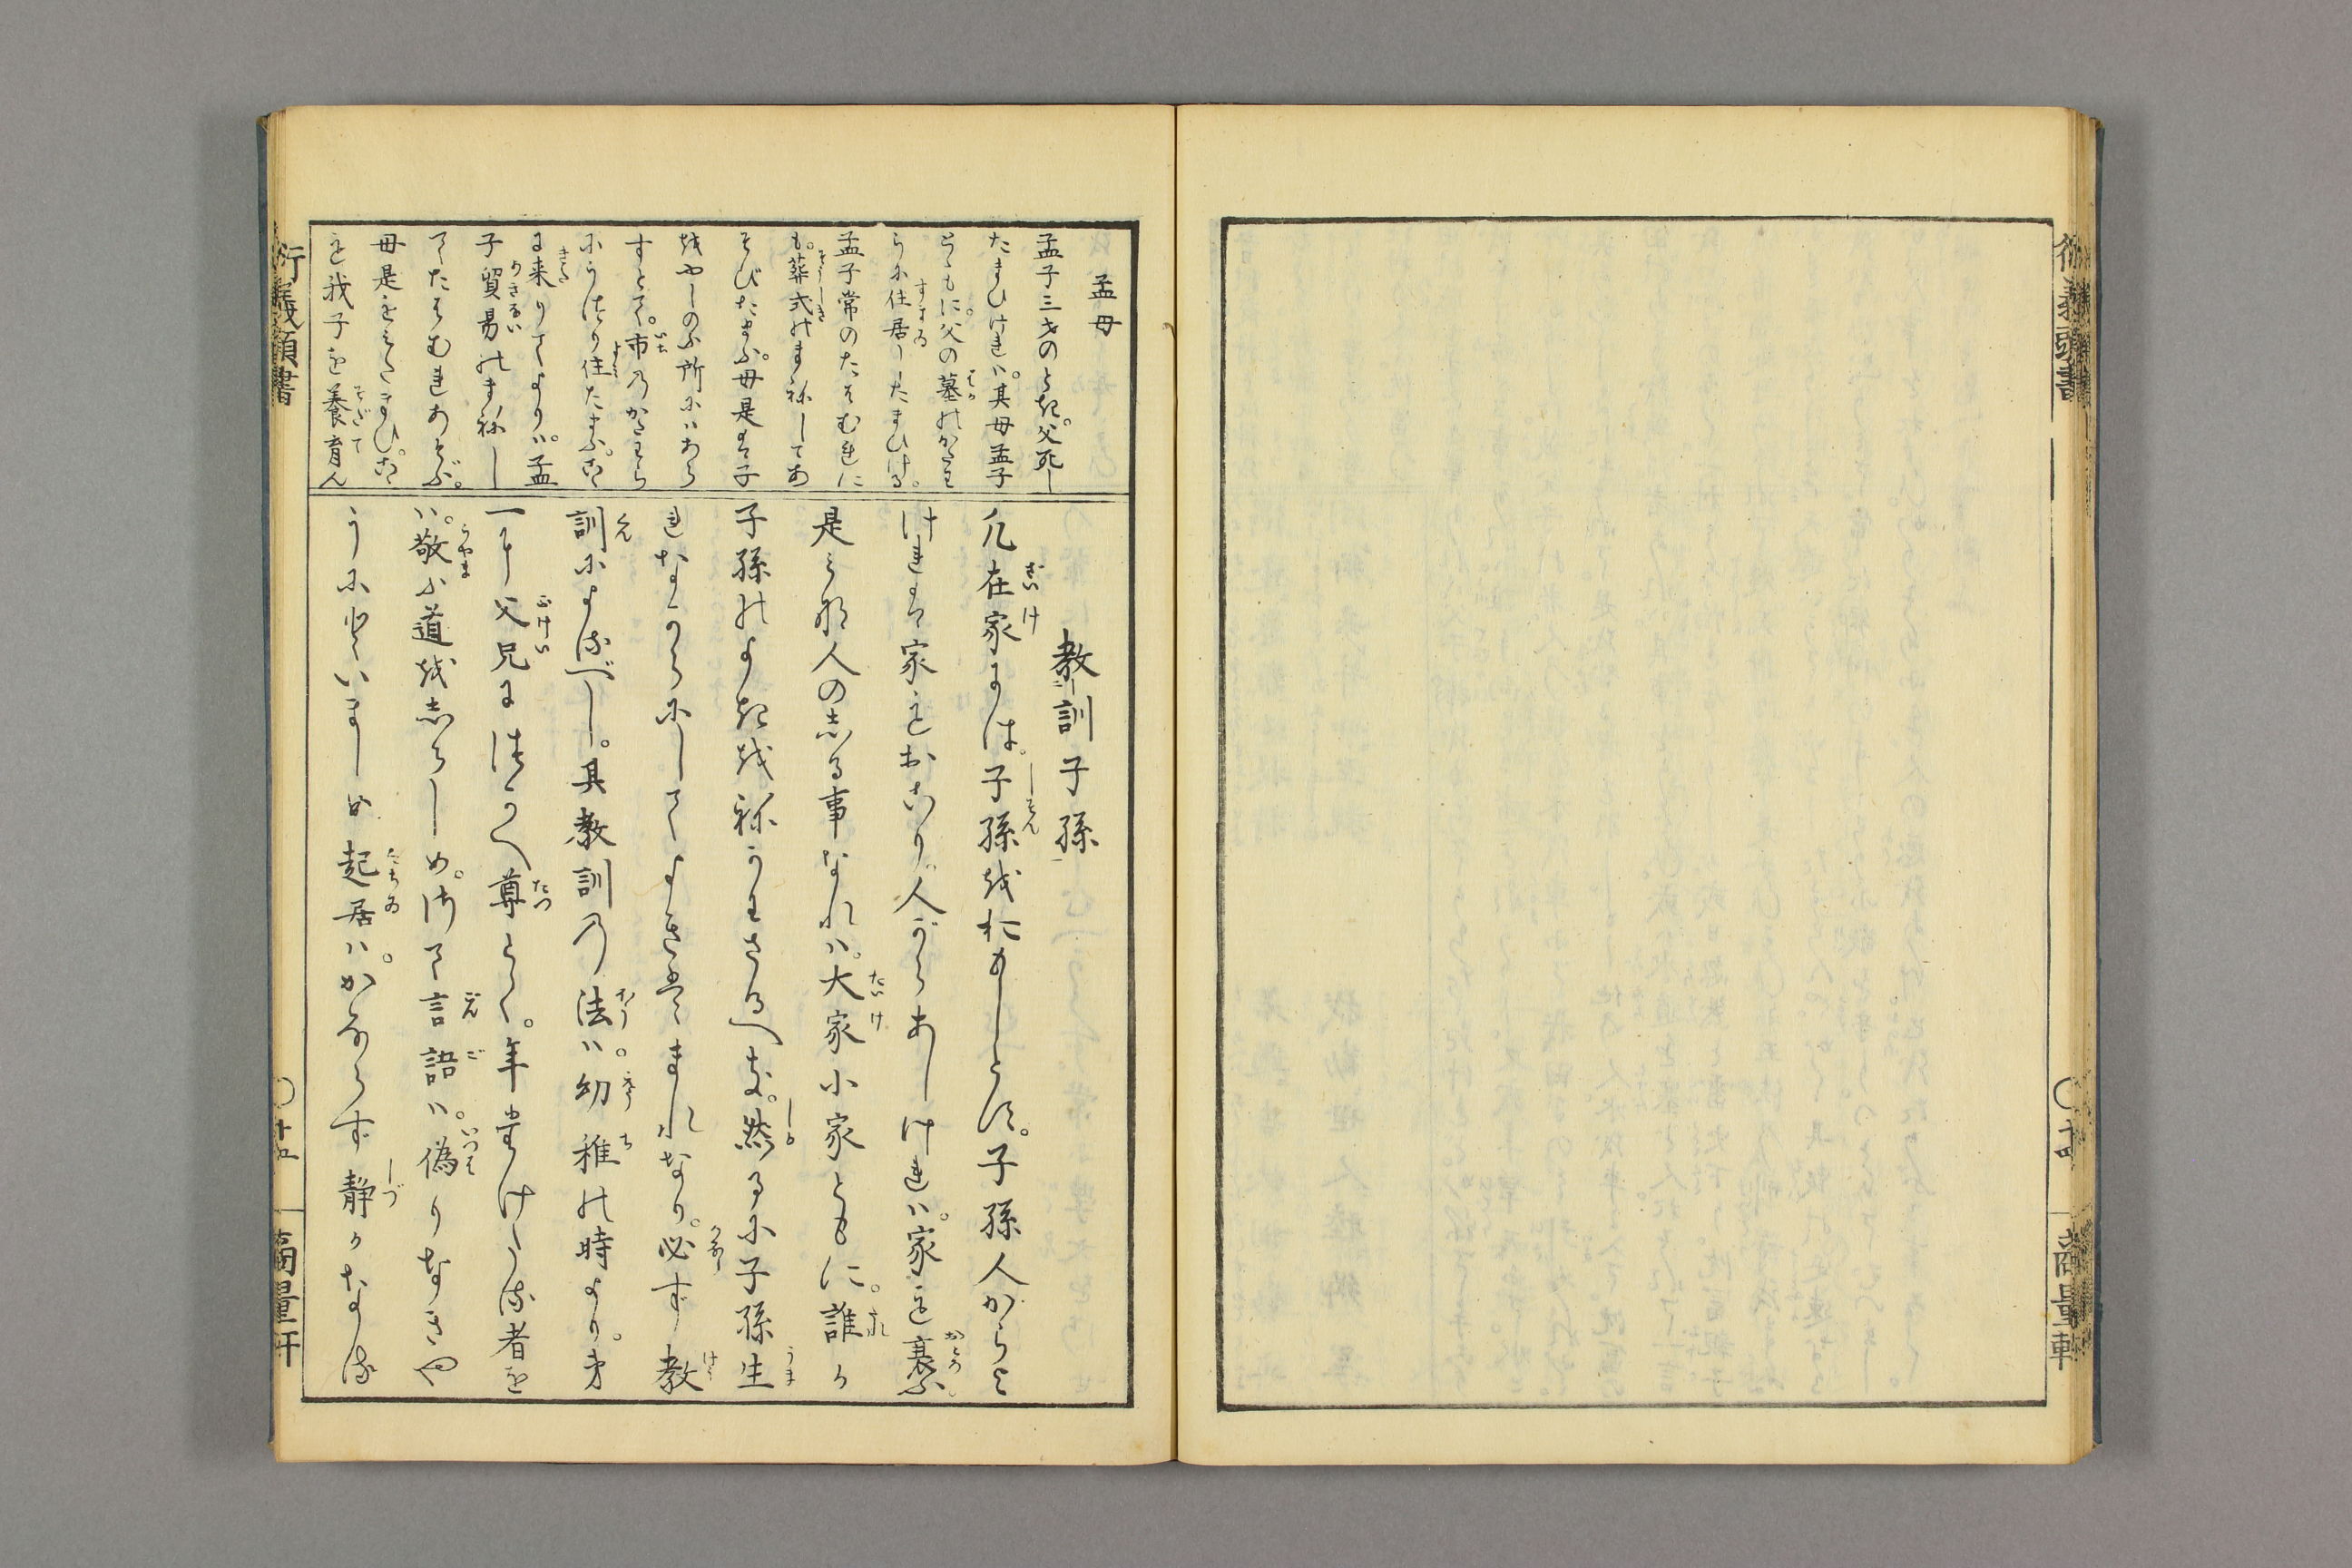 孟母
孟子三才のとき。父死し
たまひければ。其母孟子
とゝもに。父の墓のかたは
らに住居したまひける。
孟子常のたはむれに
も。葬式のまねしてあ
そびたまふ。母是は子
をやしのふ所にはあら
ずとて。市のかたはら
にうつり住たまふ。こゝ
に来りてよりは。孟
子貿易のまねし
てたはむれあそぶ。
母是をみたまひ。こゝ
も我子を養育ん
教訓子孫
凡在家には。子孫をおもしとす。子孫人からよ
ければ家もおこり。人がらあしければ。家も衰ふ。
是みな人のしる事なれば。大家小家ともに。誰か
子孫のよきをねかはさるべき。然るに子孫生
れなからにしてよきはまれなり。必ず教
訓によるべし。其教訓の法は。幼稚の時より。第
一に父兄につかへ尊とく。年たけたる者を
は。敬ふ道をしらしめ。さて言語は。偽りなきや
うにといましめ起居は。かならず静かなる
行義頭書
〇十五
商量軒
行義頭書
商量軒